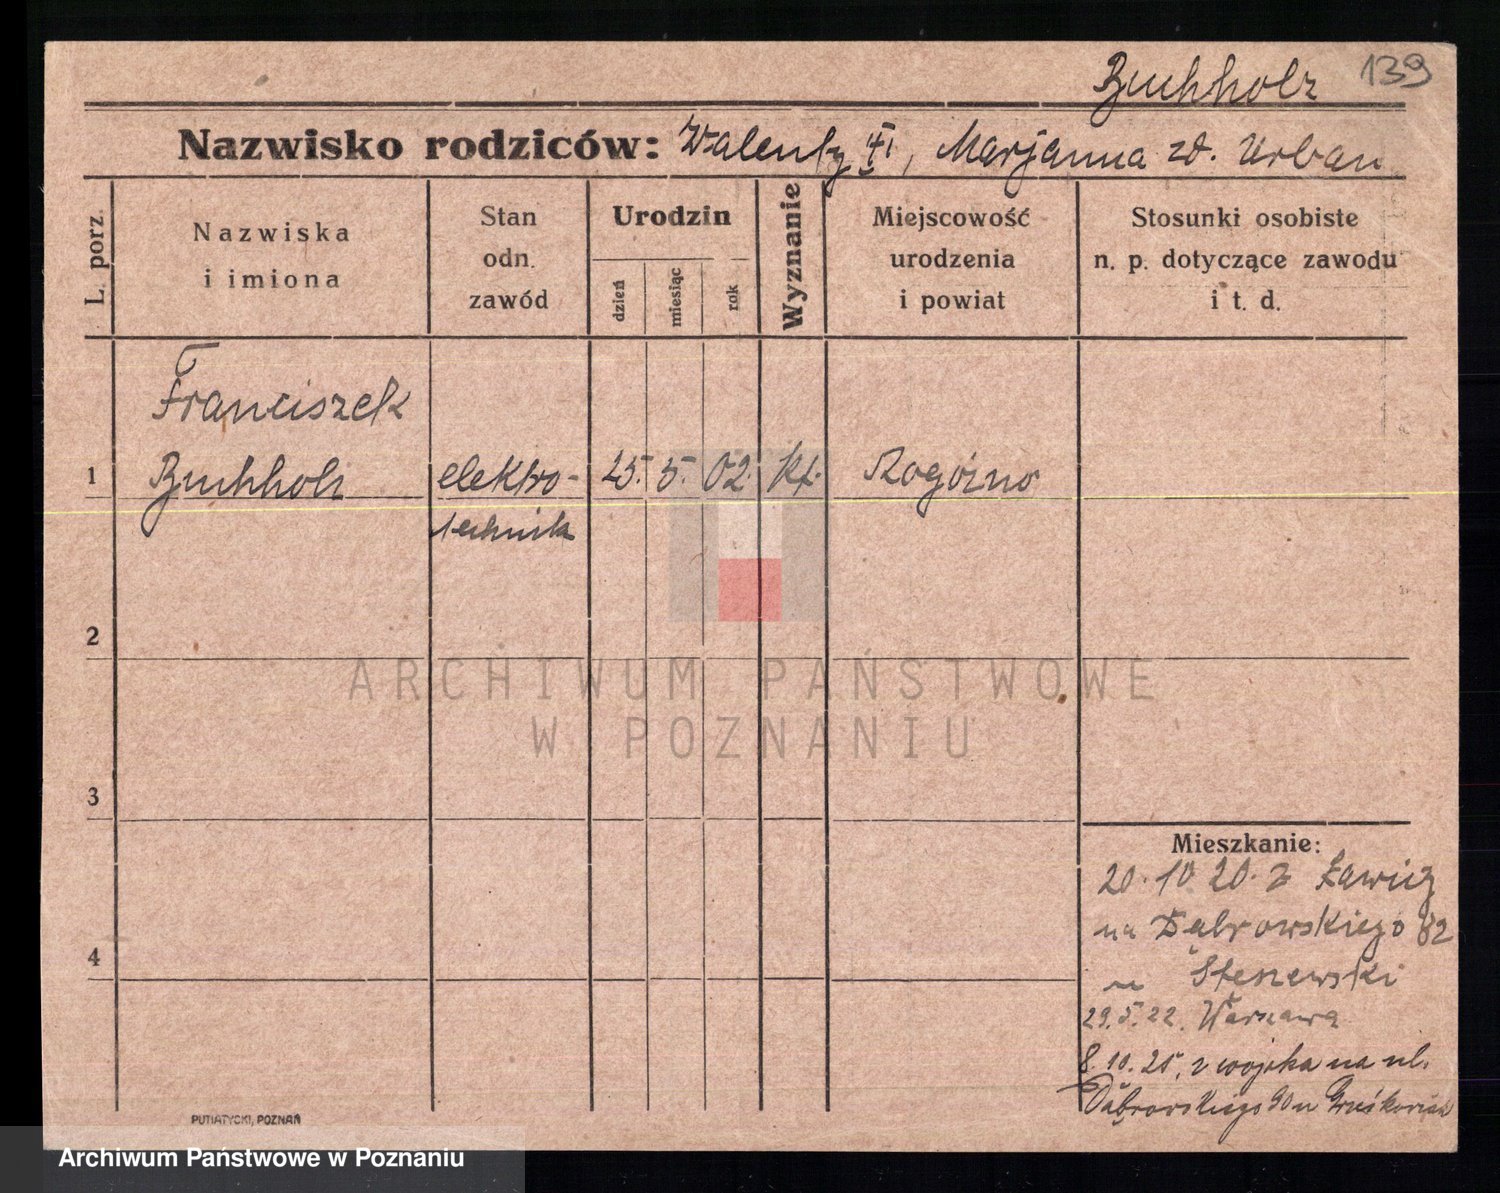 Buchholz 139
Nazwisko rodziców: Walenty, Marjanna zd. Urban
L. porz.
Nazwiska
i imiona
Stan
odn.
zawód
Urodzin
dzień
miesiąc
rok
Wyznanie
Miejscowość
urodzenia
i powiat
Stosunki osobiste
n. p. dotyczące zawodu
i t. d.
Franciszek
1 Buchholz elektro- 25. 5. 02. kt. Rogoźno
technik
2
3
4
Mieszkanie:
20.10 20. z Ławicy
na Dąbrowskiego 82
u Stęszewski
29.5.22. Warszawa
8.10.25. z wojska na ul.
Dąbrowskiego 90 u
PUTIATYCKI, POZNAŃ
ARCHIWUM PAŃSTWOWE
W POZNANIU
Archiwum Państwowe w Poznaniu